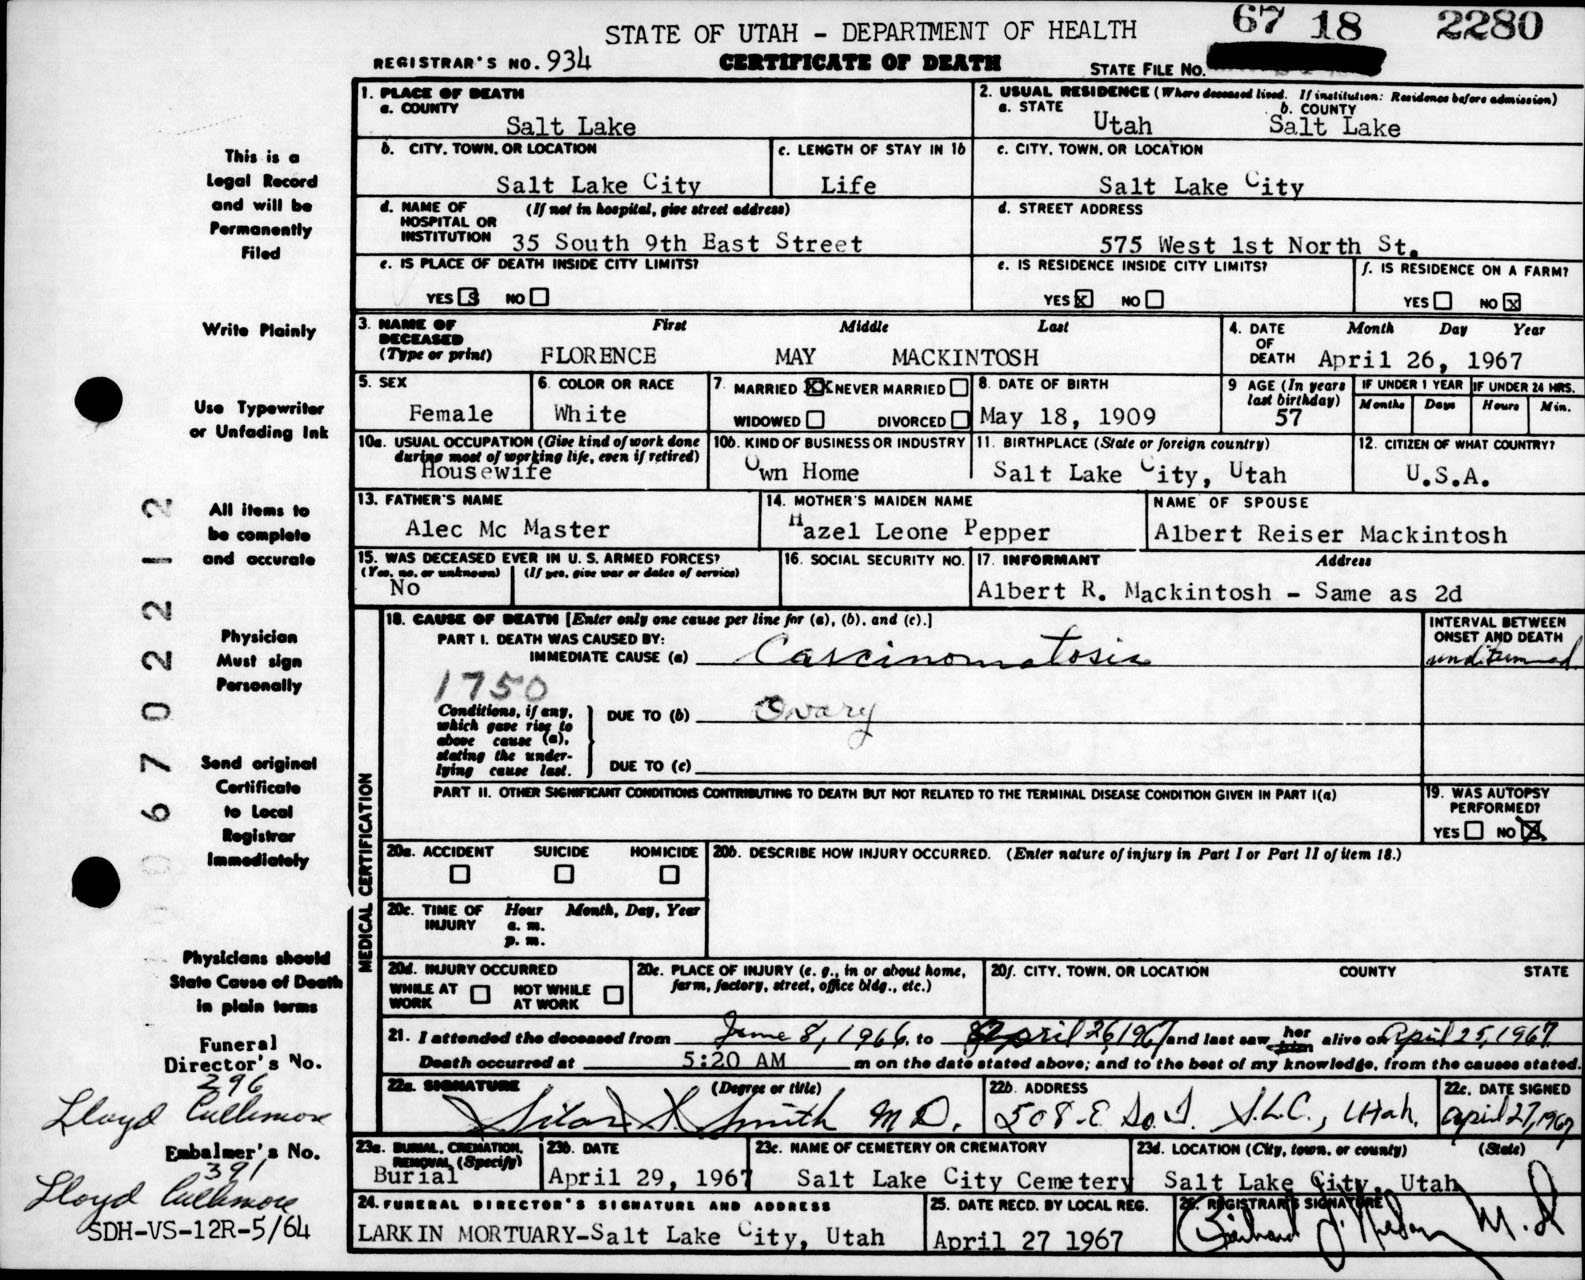 STATE OF UTAH – DEPARTMENT OF HEALTH
67 18 2280
REGISTRAR'S NO. 934
CERTIFICATE OF DEATH
STATE FILE NO.
1. PLACE OF DEATH
a. COUNTY
Salt Lake
2. USUAL RESIDENCE (Where deceased lived. If institution: Residence before admission)
a. STATE b. COUNTY
Utah Salt Lake
b. CITY, TOWN, OR LOCATION
Salt Lake City
c. LENGTH OF STAY IN 1b
Life
c. CITY, TOWN, OR LOCATION
Salt Lake City
d. NAME OF HOSPITAL OR INSTITUTION (If not in hospital, give street address)
35 South 9th East Street
d. STREET ADDRESS
575 West 1st North St.
e. IS PLACE OF DEATH INSIDE CITY LIMITS?
YES S NO
e. IS RESIDENCE INSIDE CITY LIMITS?
YES X NO
f. IS RESIDENCE ON A FARM?
YES NO X
3. NAME OF DECEASED (Type or print)
First Middle Last
FLORENCE MAY MACKINTOSH
4. DATE OF DEATH
Month Day Year
April 26, 1967
5. SEX
Female
6. COLOR OR RACE
White
7. MARRIED XX NEVER MARRIED
WIDOWED DIVORCED
8. DATE OF BIRTH
May 18, 1909
9 AGE (In years last birthday)
57
IF UNDER 1 YEAR
Months Days
IF UNDER 24 HRS.
Hours Min.
10a. USUAL OCCUPATION (Give kind of work done during most of working life, even if retired)
Housewife
10b. KIND OF BUSINESS OR INDUSTRY
Own Home
11. BIRTHPLACE (State or foreign country)
Salt Lake City, Utah
12. CITIZEN OF WHAT COUNTRY?
U.S.A.
13. FATHER'S NAME
Alec Mc Master
14. MOTHER'S MAIDEN NAME
Hazel Leone Pepper
NAME OF SPOUSE
Albert Reiser Mackintosh
15. WAS DECEASED EVER IN U. S. ARMED FORCES?
(Yes, no, or unknown) (If yes, give war or dates of service)
No
16. SOCIAL SECURITY NO.
17. INFORMANT Address
Albert R. Mackintosh – Same as 2d
MEDICAL CERTIFICATION
18. CAUSE OF DEATH [Enter only one cause per line for (a), (b), and (c).]
PART I. DEATH WAS CAUSED BY:
IMMEDIATE CAUSE (a) Carcinomatosis
INTERVAL BETWEEN ONSET AND DEATH
1750
Conditions, if any, which gave rise to above cause (a), stating the underlying cause last.
DUE TO (b) Ovary
DUE TO (c)
PART II. OTHER SIGNIFICANT CONDITIONS CONTRIBUTING TO DEATH BUT NOT RELATED TO THE TERMINAL DISEASE CONDITION GIVEN IN PART I(a)
19. WAS AUTOPSY PERFORMED?
YES NO X
20a. ACCIDENT SUICIDE HOMICIDE
20b. DESCRIBE HOW INJURY OCCURRED. (Enter nature of injury in Part I or Part II of item 18.)
20c. TIME OF INJURY
Hour Month, Day, Year
a. m.
p. m.
20d. INJURY OCCURRED
WHILE AT WORK NOT WHILE AT WORK
20e. PLACE OF INJURY (e. g., in or about home, farm, factory, street, office bldg., etc.)
20f. CITY, TOWN, OR LOCATION COUNTY STATE
21. I attended the deceased from June 8, 1966, to April 26, 1967 and last saw her him alive on April 25, 1967.
Death occurred at 5:20 AM m on the date stated above; and to the best of my knowledge, from the causes stated.
22a. SIGNATURE (Degree or title)
Silas S. Smith M D.
22b. ADDRESS
508 E. So. T. S.L.C., Utah.
22c. DATE SIGNED
April 27, 1967
23a. BURIAL, CREMATION, REMOVAL (Specify)
Burial
23b. DATE
April 29, 1967
23c. NAME OF CEMETERY OR CREMATORY
Salt Lake City Cemetery
23d. LOCATION (City, town, or county) (State)
Salt Lake City, Utah
24. FUNERAL DIRECTOR'S SIGNATURE AND ADDRESS
LARKIN MORTUARY–Salt Lake City, Utah
25. DATE RECD. BY LOCAL REG.
April 27 1967
26. REGISTRAR'S SIGNATURE
M.D
This is a
Legal Record
and will be
Permanently
Filed
Write Plainly
Use Typewriter
or Unfading Ink
All items to
be complete
and accurate
Physician
Must sign
Personally
Send original
Certificate
to Local
Registrar
Immediately
Physicians should
State Cause of Death
in plain terms
Funeral
Director's No.
296
Lloyd Cullimore
Embalmer's No.
391
Lloyd Cullimore
SDH-VS-12R-5/64
67022122